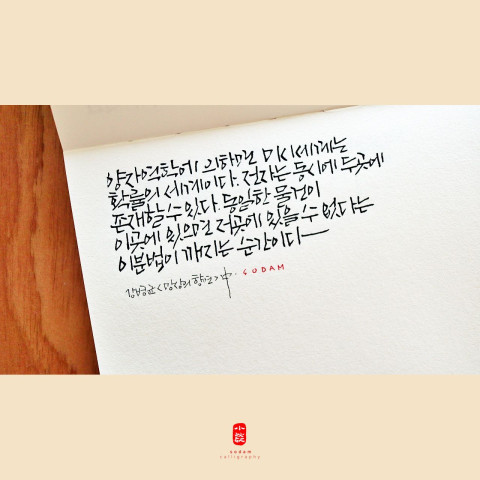 양자역학에 의하면 미시세계는
확률의 세계이다. 전자는 동시에 두곳에
존재할 수 있다. 동일한 물건이
이곳에 있으면 저곳에 있을 수 없다는
이분법이 깨지는 순간이다
김병완 < 망상의 향연 > 中 · SODAM
小談
sodam
calligraphy